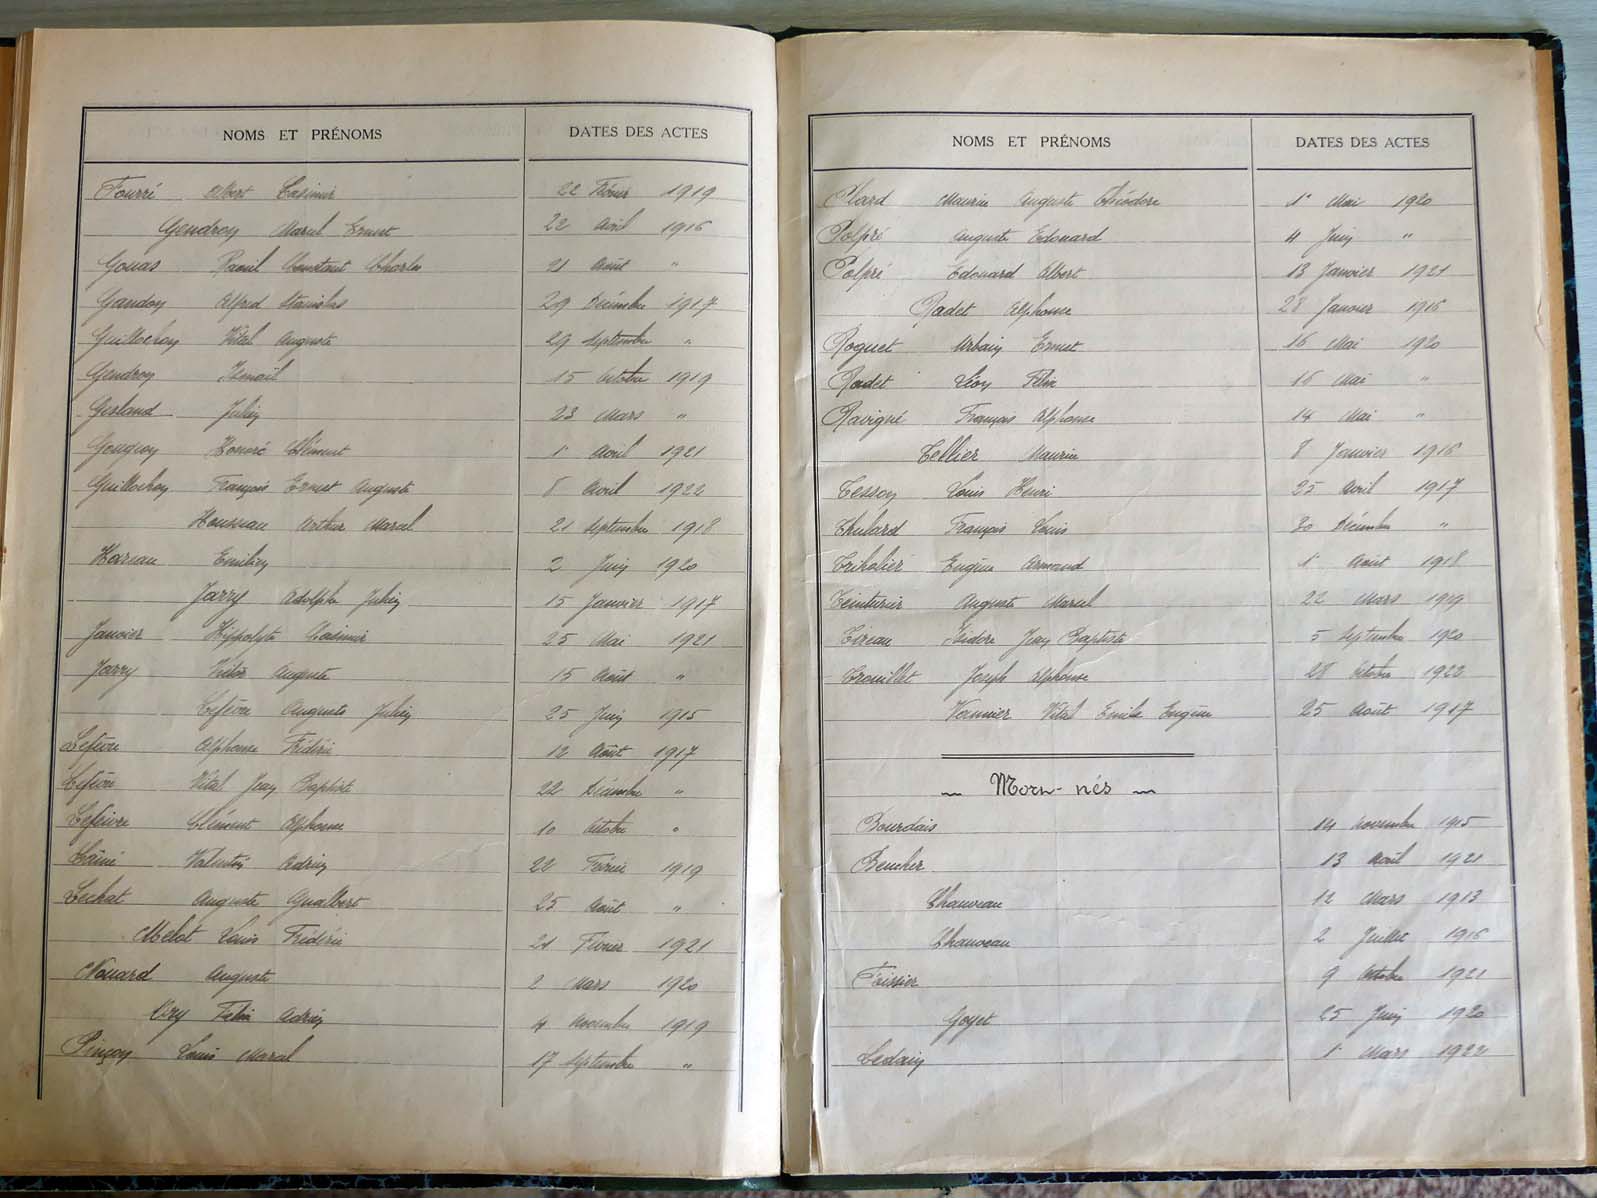 NOMS ET PRÉNOMS DATES DES ACTES
Fourré Albert Casimir 22 Février 1919
Gendron Marcel Ernest 22 Avril 1916
Gouas Raoul Constant Charles 21 Août "
Gandon Alfred Stanislas 29 Décembre 1917
Guillochon Vital Auguste 29 Septembre "
Gendron Ismaïl 15 Octobre 1919
Gesland Julien 23 Mars "
Gougeon Honoré Clément 1 Avril 1921
Guillochon François Ernest Auguste 8 Avril 1922
Housseau Arthur Marcel 21 Septembre 1918
Hareau Emilien 2 Juin 1920
Jarry Adolphe Julien 15 Janvier 1917
Janvier Hippolyte Casimir 25 Mai 1921
Jarry Victor Auguste 15 Août "
Lefèvre Auguste Julien 25 Juin 1915
Lefèvre Alphonse Frédéric 12 Août 1917
Lefèvre Vital Jean Baptiste 22 Décembre "
Lefeivre Clément Alphonse 10 Octobre "
Lainé Valentin Adrien 22 Février 1919
Lechat Auguste Gualbert 25 Août "
Melot Louis Frédéric 21 Février 1921
Nouard Auguste 2 Mars 1920
Ory Félix Adrien 4 Novembre 1919
Pinçon Louis Marcel 17 Septembre "
NOMS ET PRÉNOMS DATES DES ACTES
Plard Maurice Auguste Théodore 1er Mai 1920
Polpré Auguste Edouard 4 Juin "
Polpré Edouard Albert 13 Janvier 1921
Radet Alphonse 28 Janvier 1916
Roguet Urbain Ernest 16 Mai 1920
Radet Léon Félix 16 Mai "
Ravigné François Alphonse 14 Mai "
Tellier Maurice 8 Janvier 1916
Tesson Louis Henri 25 Avril 1917
Thulard François Louis 30 Décembre "
Trihalier Eugène Armand 1 Août 1918
Teinturier Auguste Marcel 22 Mars 1919
Tireau Isidore Jean Baptiste 5 Septembre 1920
Trouillet Joseph Alphonse 28 Octobre 1922
Vermier Vital Emile Eugène 25 Août 1917
Morn-nés
Bourdais 14 Novembre 1915
Beucher 13 Août 1921
Chauveau 12 Mars 1913
Chauveau 2 Juillet 1916
Foissier 9 Octobre 1921
Goyet 25 Juin 1920
Ledain 1 Mars 1922